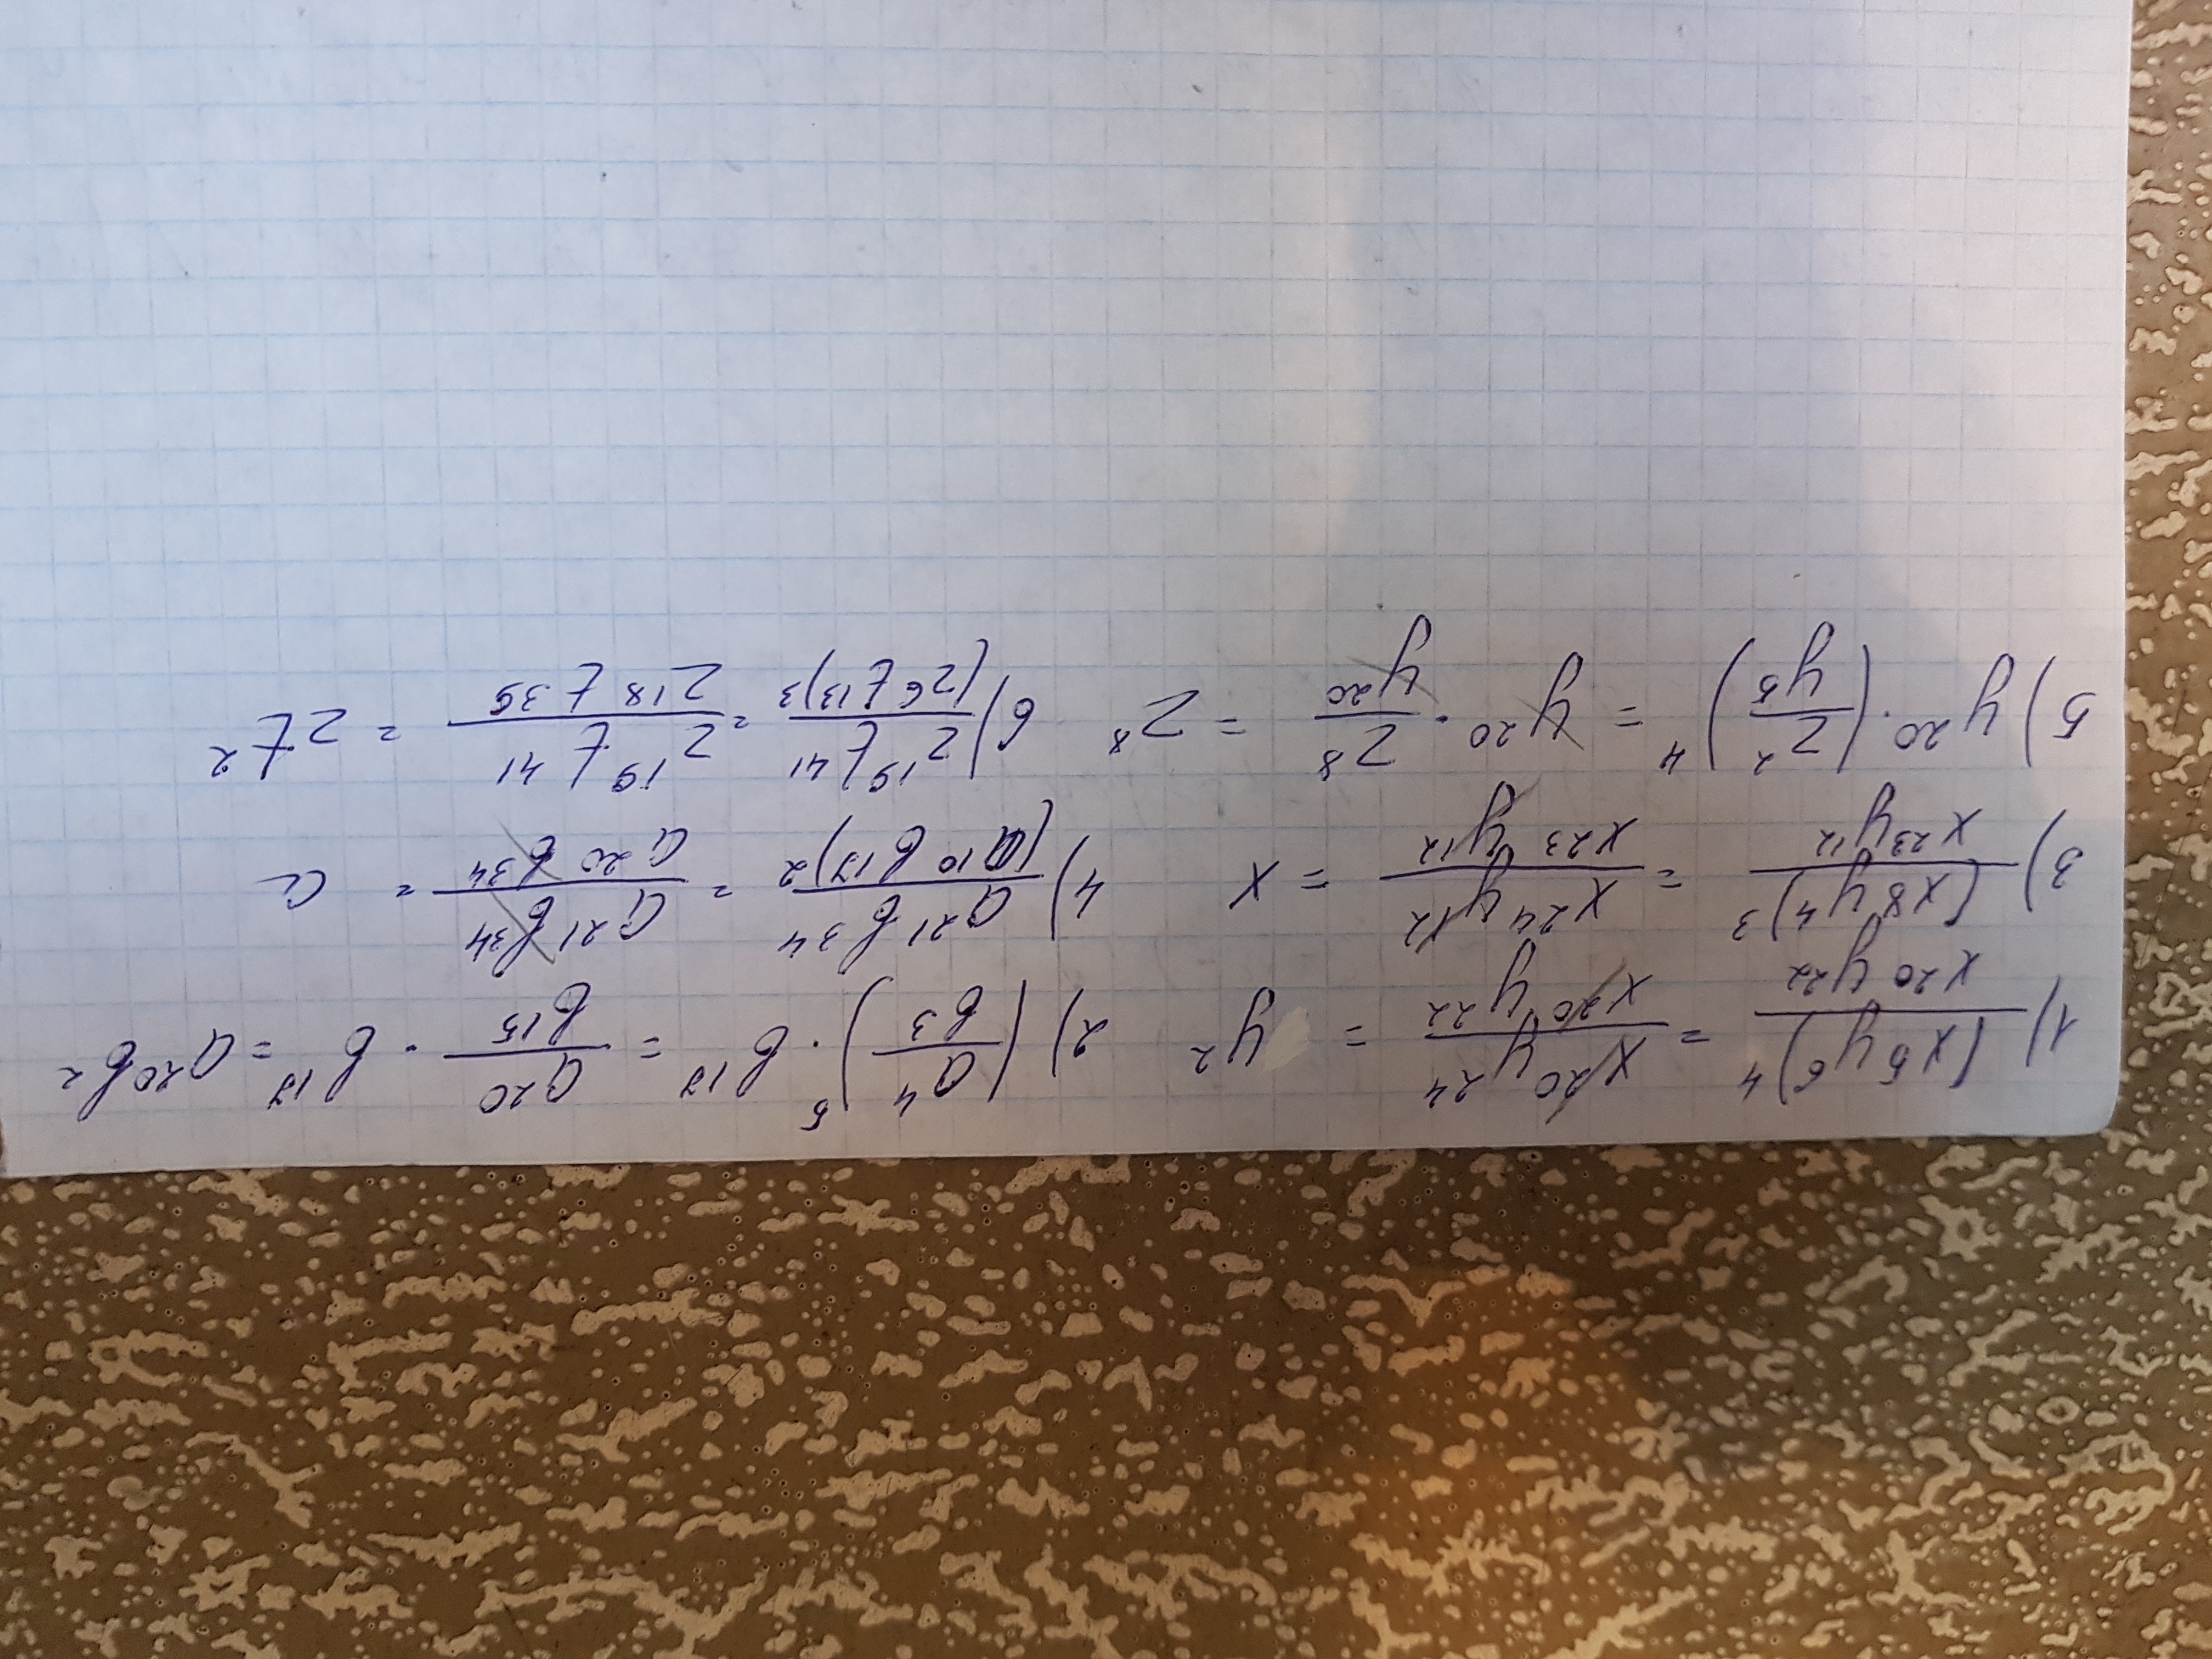 1) (x^5 y^6)^4 / x^20 y^22 = x^20 y^24 / x^20 y^22 = y^2   2) (a^4 / b^3)^5 · b^17 = a^20 / b^15 · b^17 = a^20 b^2
3) (x^8 y^4)^3 / x^23 y^12 = x^24 y^12 / x^23 y^12 = x   4) a^21 b^34 / (a^10 b^17)^2 = a^21 b^34 / a^20 b^34 = a
5) y^20 · (z^2 / y^5)^4 = y^20 · z^8 / y^20 = z^8   6) z^19 t^41 / (z^6 t^13)^3 = z^19 t^41 / z^18 t^39 = z t^2